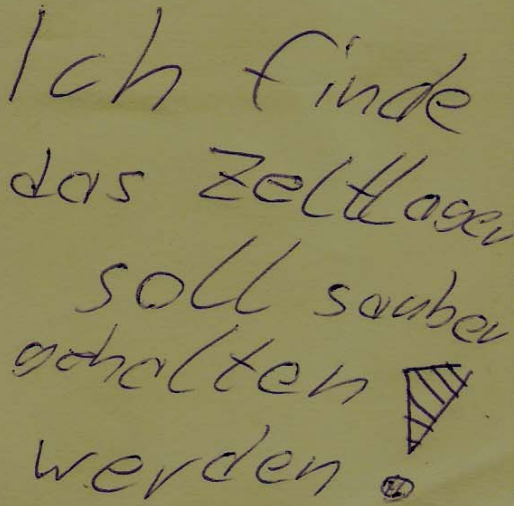 Ich finde
das Zeltlager
soll sauber
gehalten
werden!